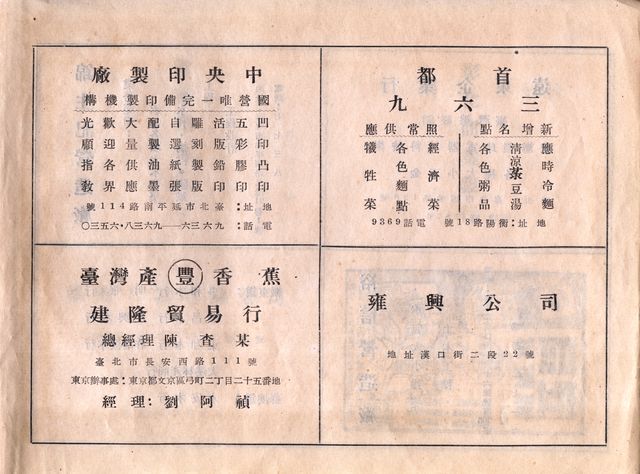 首都
三六九
新增名點 照常供應
應時冷麵
清涼荼豆湯
各色粥品
經濟菜
各色麵點
犧牲菜
地址:衡陽路18號 電話9369
中央印製廠
國營唯一完備印製機構
凹印凸印
五彩膠印
活版鉛印
雕刻製版
自選紙張
配製油墨
大量供應
歡迎各界
光顧指教
地址:臺北市延平南路114號
電話:九六三六——六九三八·六五三〇
雍興公司
地址漢口街二段22號
臺灣產豐香蕉
建隆貿易行
總經理陳查某
臺北市長安西路111號
東京辦事處:東京都文京區弓町二丁目二十五番地
經理:劉阿禎